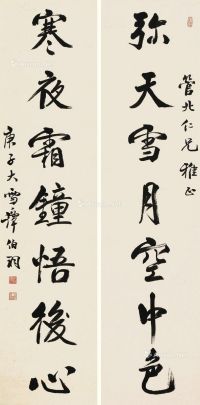 弥天雪月空中色
管北仁兄雅正
寒夜霜鐘悟後心
庚子大雪譚伯羽